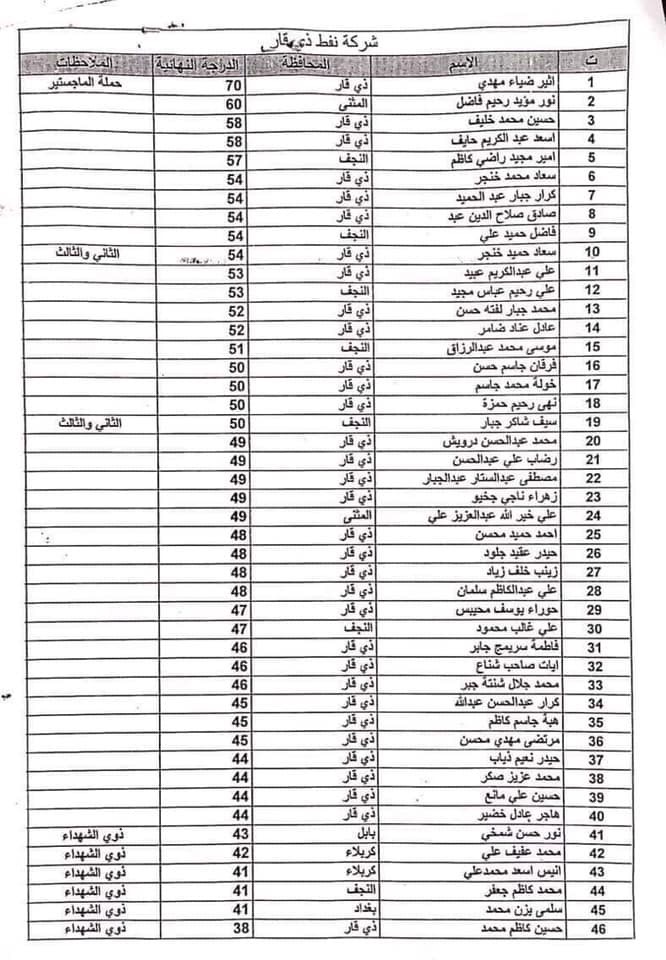 شركة نفط ذي قار
ت الاسم المحافظة الدراجة النهائية الملاحظات
1 اثير ضياء مهدي ذي قار 70 حملة الماجستير
2 نور مؤيد رحيم فاضل المثنى 60
3 حسين محمد خليف ذي قار 58
4 اسعد عبد الكريم حايف ذي قار 58
5 امير مجيد راضي كاظم النجف 57
6 سعاد محمد خنجر ذي قار 54
7 كرار جبار عبد الحميد ذي قار 54
8 صادق صلاح الدين عبد ذي قار 54
9 فاضل حميد علي النجف 54
10 سعاد حميد خنجر ذي قار 54 الثاني والثالث
11 علي عبدالكريم عبيد ذي قار 53
12 علي رحيم عباس مجيد النجف 53
13 محمد جبار لفته حسن ذي قار 52
14 عادل عناد ضامر ذي قار 52
15 موسى محمد عبدالرزاق النجف 51
16 فرقان جاسم حسن ذي قار 50
17 خولة محمد جاسم ذي قار 50
18 نهى رحيم حمزة ذي قار 50
19 سيف شاكر جبار النجف 50 الثاني والثالث
20 محمد عبدالحسن درويش ذي قار 49
21 رضاب علي عبدالحسن ذي قار 49
22 مصطفى عبدالستار عبدالجبار ذي قار 49
23 زهراء ناجي جخيو ذي قار 49
24 علي خير الله عبدالعزيز علي المثنى 49
25 احمد حميد محسن ذي قار 48
26 حيدر عقيد جلود ذي قار 48
27 زينب خلف زياد ذي قار 48
28 علي عبدالكاظم سلمان ذي قار 48
29 حوراء يوسف محيبس ذي قار 47
30 علي غالب محمود النجف 47
31 فاطمة سريمج جابر ذي قار 46
32 ايات صاحب شناع ذي قار 46
33 محمد جلال شنتة جبر ذي قار 46
34 كرار عبدالحسن عبدالله ذي قار 45
35 هبة جاسم كاظم ذي قار 45
36 مرتضى مهدي محسن ذي قار 45
37 حيدر نعيم ذياب ذي قار 44
38 محمد عزيز صكر ذي قار 44
39 حسين علي مانع ذي قار 44
40 هاجر عادل خضير ذي قار 44
41 نور حسن شمخي بابل 43 ذوي الشهداء
42 محمد عفيف علي كربلاء 42 ذوي الشهداء
43 انيس اسعد محمدعلي كربلاء 41 ذوي الشهداء
44 محمد كاظم جعفر النجف 41 ذوي الشهداء
45 سلمى يزن محمد بغداد 41 ذوي الشهداء
46 حسين كاظم محمد ذي قار 38 ذوي الشهداء